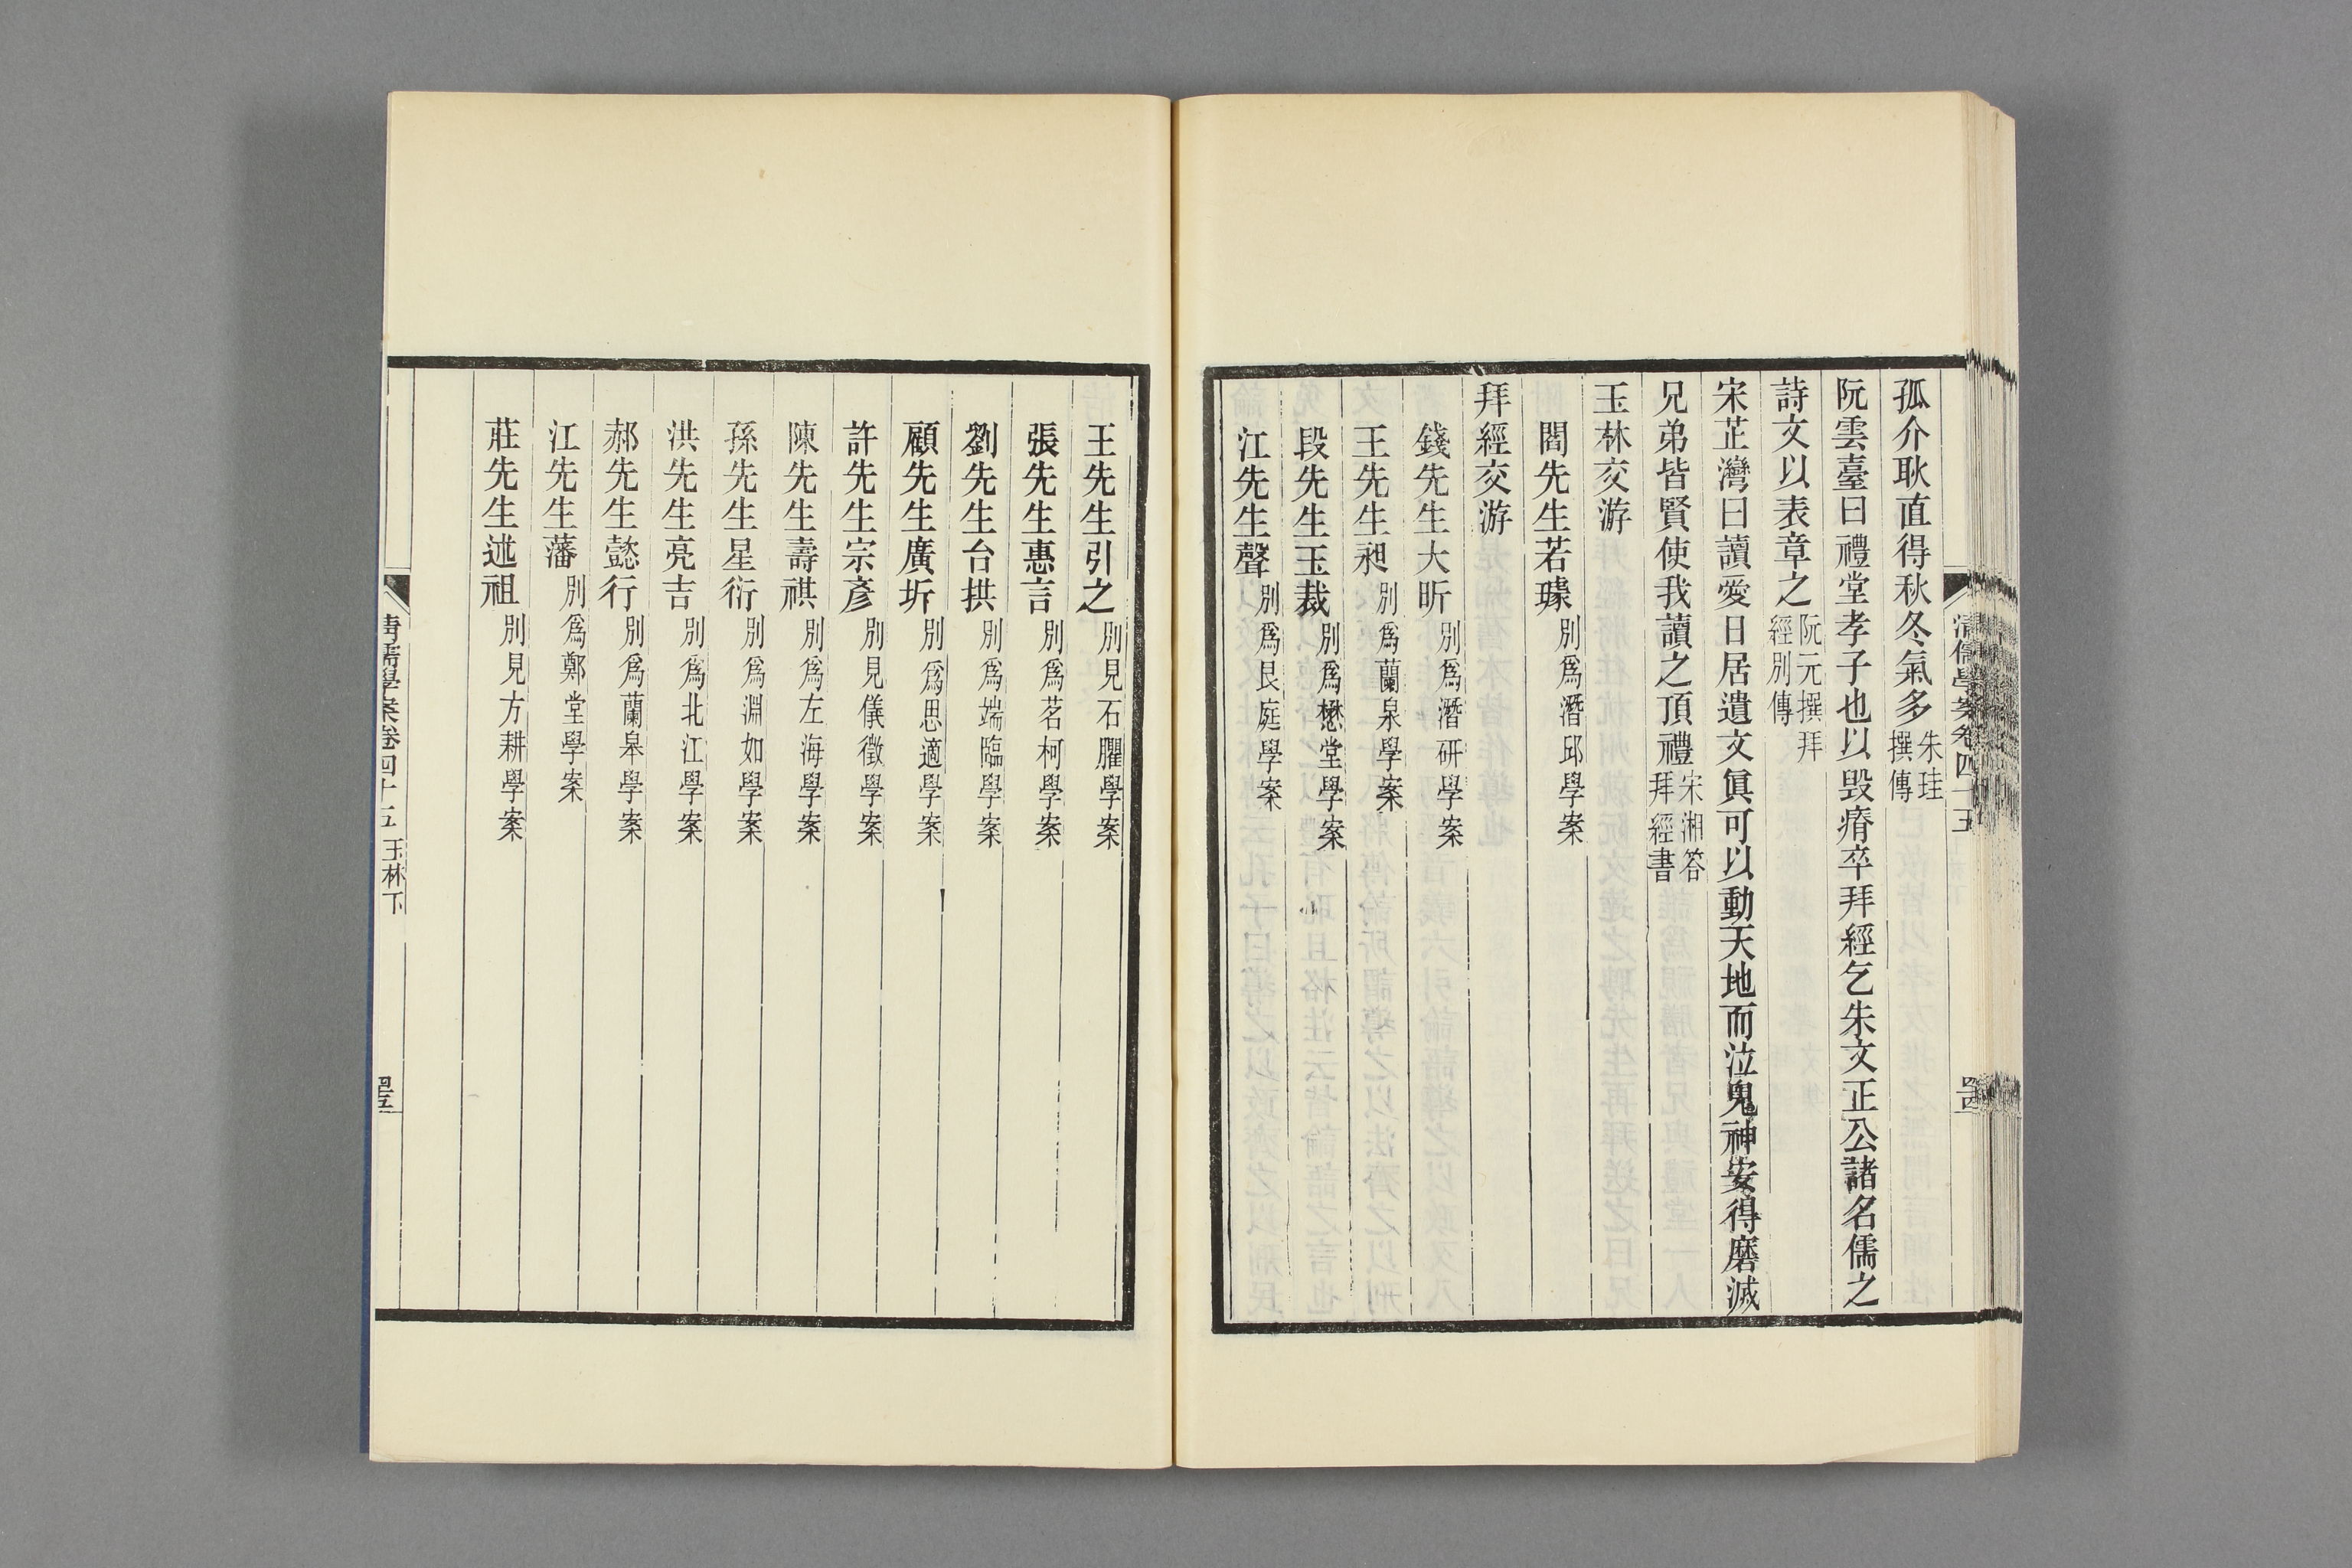 孤介耿直得秋冬氣多朱珪撰傳
阮雲臺曰禮堂孝子也以毀瘠卒拜經乞朱文正公諸名儒之
詩文以表章之阮元撰拜經別傳
宋芷灣曰讀愛日居遺文眞可以動天地而泣鬼神安得磨滅
兄弟皆賢使我讀之頂禮宋湘答拜經書
玉林交游
閻先生若璩別爲潛邱學案
拜經交游
錢先生大昕別爲潛研學案
王先生昶別爲蘭泉學案
段先生玉裁別爲懋堂學案
江先生聲別爲艮庭學案
清儒學案卷四十五
四四
王先生引之別見石臞學案
張先生惠言別爲茗柯學案
劉先生台拱別爲端臨學案
顧先生廣圻別爲思適學案
許先生宗彥別見儀徵學案
陳先生壽祺別爲左海學案
孫先生星衍別爲淵如學案
洪先生亮吉別爲北江學案
郝先生懿行別爲蘭皋學案
江先生藩別爲鄭堂學案
莊先生述祖別見方耕學案
清儒學案卷四十五 玉林下
四五